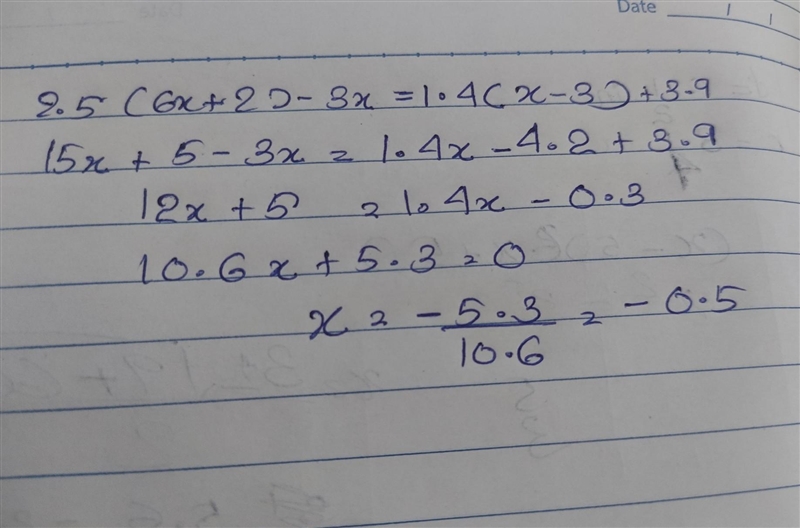 Date
2.5 (6x+2) - 3x = 1.4(x-3) + 3.9
15x + 5 - 3x = 1.4x - 4.2 + 3.9
12x + 5 = 1.4x - 0.3
10.6x + 5.3 = 0
x = -5.3/10.6 = -0.5